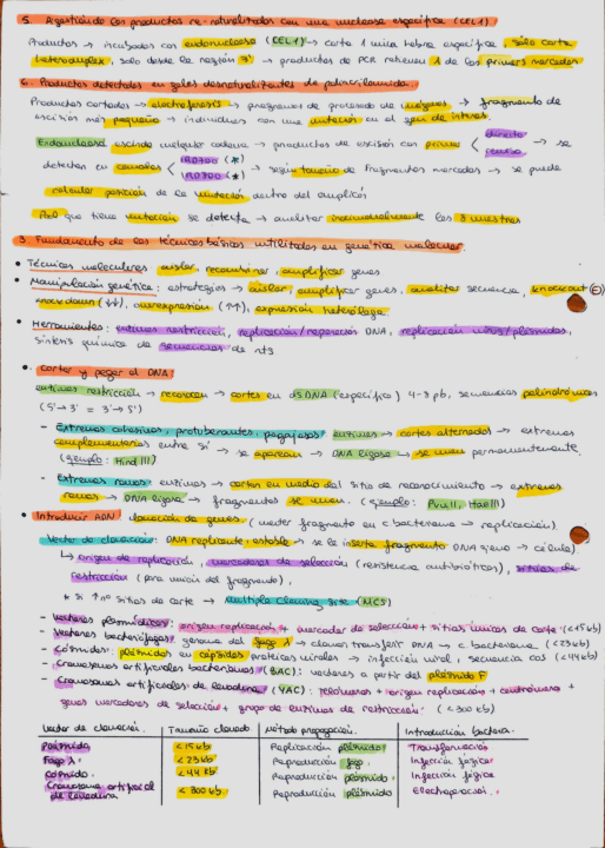 5. Digestión de los productos re-naturalizados con una nucleasa específica (CEL1).
Productos → incubados con endonucleasa (CEL1) → corta 1 única hebra específica, sólo corta
heteroduplex, solo desde la región 3' → productos de PCR retienen 1 de los primers marcados.
6. Productos detectados en geles desnaturalizantes de poliacrilamida.
Productos cortados → electroforesis → programas de procesado de imágenes → fragmento de
escisión más pequeño → individuos con una mutación en el gen de interés.
Endonucleasa escinde cualquier cadena → productos de escisión con primer < directo
reverso → se
detectan en canales < IRD700 (*)
(*) → según tamaño de fragmentos marcados → se puede
calcular posición de la mutación dentro del amplicón
Pool que tiene mutación se detecta → analizar individualmente las 8 muestras
3. Fundamento de las técnicas básicas utilizadas en genética molecular.
• Técnicas moleculares: aislar, recombinar, amplificar genes
• Manipulación genética: estrategias → aislar, amplificar genes, analizar secuencia, knockout
knockdown (↓↓), overexpresión (↑↑), expresión heteróloga
• Herramientas: enzimas restricción, replicación/reparación DNA, replicación virus/plásmidos,
síntesis química de secuencias de nts
• Cortar y pegar el DNA:
enzimas restricción → reconocen → cortes en dsDNA (específico) 4-8 pb, secuencias palindrómicas
(5'→3' = 3'→5')
- Extremos cohesivos, protuberantes, pegajosos: enzimas → cortes alternados → extremos
complementarios entre sí → se aparean → DNA ligasa → se unen permanentemente.
(ejemplo: Hind III)
- Extremos romos: enzimas → cortan en medio del sitio de reconocimiento → extremos
romos → DNA ligasa → fragmentos se unen. (ejemplo: PvuII, HaeIII)
• Introducir ADN: clonación de genes. (vector fragmento en c bacteriana → replicación).
Vector de clonación: DNA replicante, estable → se le inserta fragmento DNA ajeno → célula).
↳ origen de replicación, marcadores de selección (resistencia antibióticos), sitios de
restricción (para unión del fragmento),
* si ↑ nº sitios de corte → Multiple Cloning Site (MCS)
- Vectores plasmídicos: origen replicación + marcador de selección + sitios únicos de corte (<15 kb)
- Vectores bacteriófagos: genoma del fago λ → clonar transferir DNA → c bacteriana (<23kb)
- Cósmidos: plásmidos en cápsidas proteicas virales → infección viral, secuencia cos (<44kb)
- Cromosomas artificiales bacterianos (BAC): vectores a partir del plásmido F
- Cromosomas artificiales de levadura (YAC): telómeros + origen replicación + centrómero +
genes marcadores de selección + grupo de enzimas de restricción. (<300 kb)
Vector de clonación. Tamaño clonado Método propagación. Introducción bacteria.
Plásmido <15kb Replicación plásmido Transformación
Fago λ <23kb Reproducción fago. Infección fágica
Cósmido <44 kb Reproducción plásmido Infección fágica
Cromosoma artificial
de levadura <300 kb Reproducción plásmido Electroporación